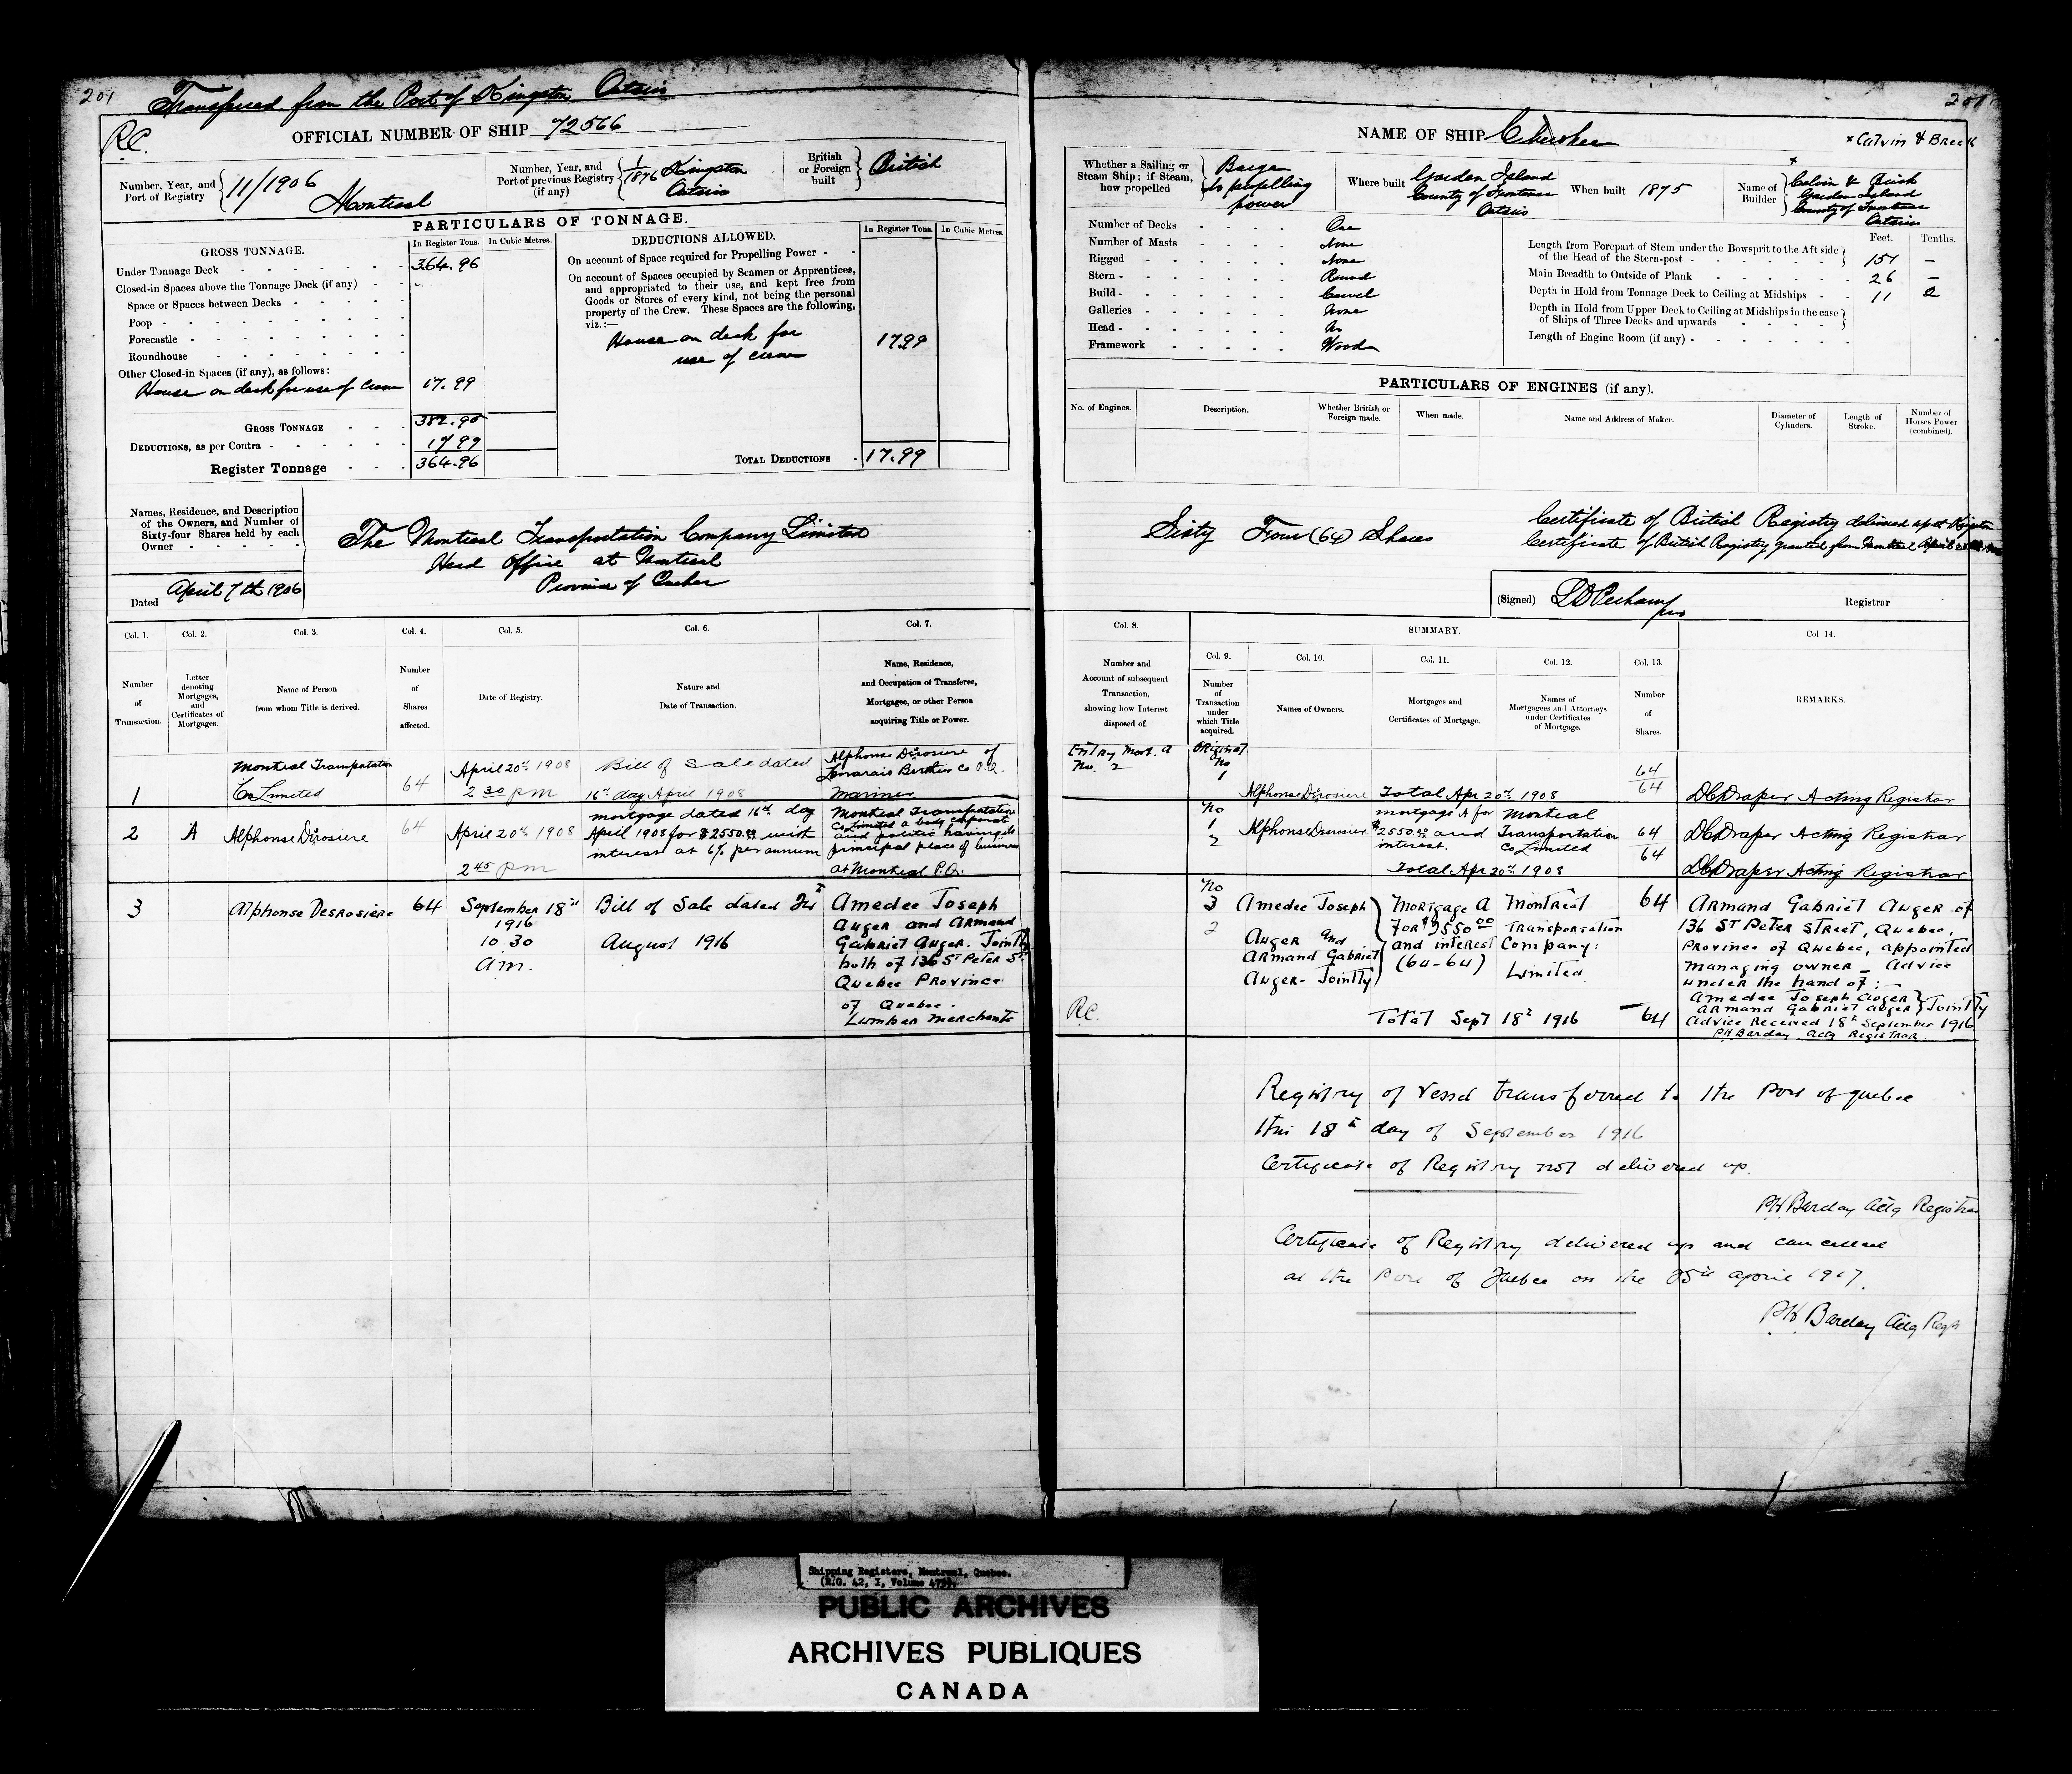 201
Transferred from the Port of Kingston Ontario
R.C.
OFFICIAL NUMBER OF SHIP 72566
Number, Year, and Port of Registry 11/1906 Montreal
Number, Year, and Port of previous Registry (if any) 1/1876 Kingston Ontario
British or Foreign built British
PARTICULARS OF TONNAGE.
GROSS TONNAGE.
In Register Tons. In Cubic Metres.
Under Tonnage Deck 364.96
Closed-in Spaces above the Tonnage Deck (if any)
Space or Spaces between Decks
Poop
Forecastle
Roundhouse
Other Closed-in Spaces (if any), as follows:
House on deck for use of Crew 17.99
GROSS TONNAGE 382.95
DEDUCTIONS, as per Contra 17.99
Register Tonnage 364.96
DEDUCTIONS ALLOWED.
In Register Tons. In Cubic Metres.
On account of Space required for Propelling Power
On account of Spaces occupied by Seamen or Apprentices,
and appropriated to their use, and kept free from
Goods or Stores of every kind, not being the personal
property of the Crew. These Spaces are the following,
viz.:—
House on deck for
use of crew 17.99
TOTAL DEDUCTIONS 17.99
Names, Residence, and Description
of the Owners, and Number of
Sixty-four Shares held by each
Owner
The Montreal Transportation Company Limited
Head Office at Montreal
Province of Quebec
Dated April 7th 1906
Col. 1. Col. 2. Col. 3. Col. 4. Col. 5. Col. 6. Col. 7.
Number of Transaction.
Letter denoting Mortgages, and Certificates of Mortgages.
Name of Person from whom Title is derived.
Number of Shares affected.
Date of Registry.
Nature and Date of Transaction.
Name, Residence, and Occupation of Transferee, Mortgagee, or other Person acquiring Title or Power.
1
Montreal Transportation
Co Limited
64
April 20th 1908
2 30 pm
Bill of Sale dated
16th day April 1908
Alphonse Dèrosiere of
Berthier Co P.Q.
Mariner
2
A
Alphonse Dèrosiere
64
April 20th 1908
2 45 pm
mortgage dated 16th day
April 1908 for $2550.00 with
interest at 6% per annum
Montreal Transportation
Co Limited a body corporate
and politic having its
principal place of business
at Montreal P.Q.
3
Alphonse Desrosiere
64
September 18th
1916
10 30
am.
Bill of Sale dated 1st
August 1916
Amedee Joseph
Auger and Armand
Gabriel Auger. Jointly
both of 136 St Peter St
Quebec Province
of Quebec.
Lumber merchants
201
NAME OF SHIP Cherokee
x Calvin & Breck
Whether a Sailing or Steam Ship; if Steam, how propelled
Barge
No propelling
power
Where built
Garden Island
County of Frontenac
Ontario
When built 1875
Name of Builder
x
Calvin & Breck
Garden Island
County of Frontenac
Ontario
Number of Decks One
Number of Masts None
Rigged None
Stern Round
Build Carvel
Galleries None
Head No
Framework Wood
Feet. Tenths.
Length from Forepart of Stem under the Bowsprit to the Aft side
of the Head of the Stern-post 151 –
Main Breadth to Outside of Plank 26 –
Depth in Hold from Tonnage Deck to Ceiling at Midships 11 2
Depth in Hold from Upper Deck to Ceiling at Midships in the case
of Ships of Three Decks and upwards
Length of Engine Room (if any)
PARTICULARS OF ENGINES (if any).
No. of Engines.
Description.
Whether British or Foreign made.
When made.
Name and Address of Maker.
Diameter of Cylinders.
Length of Stroke.
Number of Horses Power (combined).
Sixty Four (64) Shares
Certificate of British Registry delivered up at Kingston
Certificate of British Registry granted from Montreal April
(Signed) Registrar
Col. 8. SUMMARY. Col 14.
Col. 9. Col. 10. Col. 11. Col. 12. Col. 13.
Number and Account of subsequent Transaction, showing how Interest disposed of.
Number of Transaction under which Title acquired.
Names of Owners.
Mortgages and Certificates of Mortgage.
Names of Mortgagees and Attorneys under Certificates of Mortgage.
Number of Shares.
REMARKS.
Entry Mort. A
No. 2
Original
No
1
Alphonse Dèrosiere
Total Apr 20th 1908
64
64
DC Draper Acting Registrar
No
1
2
Alphonse Desrosier
mortgage A for
$2550.00 and
interest.
Montreal
Transportation
Co Limited
64
64
DC Draper Acting Registrar
Total Apr 20th 1908
DC Draper Acting Registrar
No
3
2
Amedee Joseph
Auger and
Armand Gabriel
Auger - Jointly
Mortgage A
for $2550 00
and interest
(64-64)
Montreal
Transportation
Company:
Limited
64
Armand Gabriel Auger of
136 St Peter Street, Quebec,
Province of Quebec, appointed
managing owner - Advice
under the hand of:-
Amedee Joseph Auger
Armand Gabriel Auger } Jointly
Advice Received 18th September 1916
P.H. Barclay Actg Registrar.
R.C.
Total Sept 18th 1916 64
Registry of Vessel transferred to the Port of Quebec
this 18th day of September 1916
Certificate of Registry not delivered up.
PH Barclay Actg Registrar
Certificate of Registry delivered up and cancelled
at the Port of Quebec on the 25th April 1917.
PH Barclay Actg Regr
Shipping Registers, Montreal, Quebec.
(R.G. 42, I, Volume 475).
PUBLIC ARCHIVES
ARCHIVES PUBLIQUES
CANADA